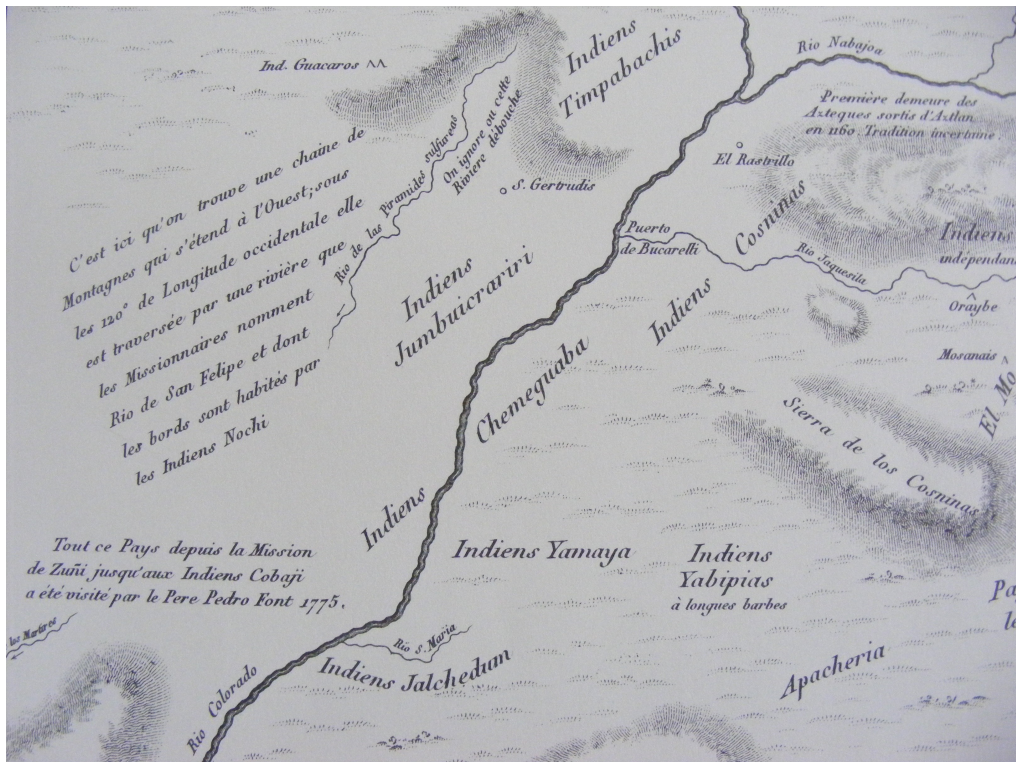 Indiens
Timpabachis
Rio Nabajoa
Ind. Guacaros
Première demeure des
Azteques sortis d'Aztlan
en 1160. Tradition incertaine.
El Rastrillo
On ignore ou cette
Riviere débouche
S. Gertrudis
Rio de las Piramides sulfureas
C'est ici qu'on trouve une chaine de
Montagnes qui s'étend à l'Ouest; sous
les 120° de Longitude occidentale elle
est traversée par une rivière que
les Missionnaires nomment
Rio de San Felipe et dont
les bords sont habités par
les Indiens Nochi
Puerto
de Bucarelli
Cosninas
Indiens
Indiens
indépendan
Rio Jaquesila
Oraybe
Indiens
Jumbuicrariri
Mosanais
El Mo
Chemeguaba
Indiens
Sierra de los Cosninas
Tout ce Pays depuis la Mission
de Zuñi jusqu'aux Indiens Cobaji
a été visité par le Pere Pedro Font 1775.
Indiens Yamaya
Indiens
Yabipias
à longues barbes
Pa
le
los Martires
Rio S. Maria
Indiens Jalchedum
Apacheria
Rio Colorado